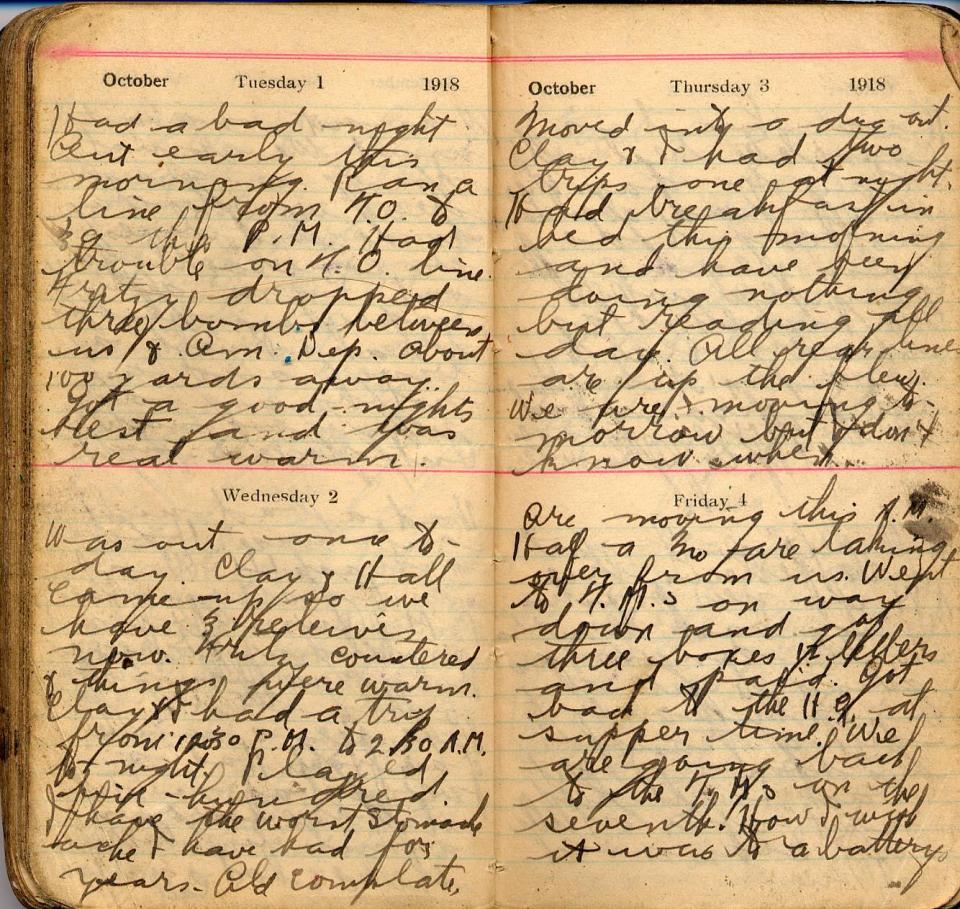 October Tuesday 1 1918
Had a bad night.
Out early this
morning. Ran a
line from O. to
this P.M. Had
trouble on O. line.
Fritzy dropped
three bombs between
us & Am. Dep. About
100 yards away.
Got a good nights
rest and was
real warm.
Wednesday 2
Was out once to-
day. Clay & Hall
came up so we
have 3 receivers
now. countered
& things were warm.
Clay & I had a trip
from P.M. to 2.30 A.M.
to night. Played
hundred.
I have the worst stomach
ache I have had for
years. Old complate,
October Thursday 3 1918
Moved into a dug out.
Clay & I had two
trips one at night.
Had breakfast in
bed this morning
and have been
doing nothing
but reading all
day. All rear lines
are up the flew.
We are moving to-
morrow but I don't
know when.
Friday 4
Are moving this A.M.
Half a are taking
over from us. Went
to on way
down and got
three boxes letters
and paid. Got
back to the at
supper time. We
are going back
to the on the
seventh. How I wish
it was to a battery